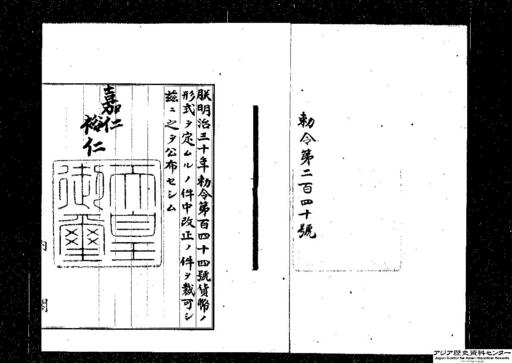 勅令第二百四十號
朕明治三十年勅令第百四十四號貨幣ノ
形式ヲ定ムルノ件中改正ノ件ヲ裁可シ
茲ニ之ヲ公布セシム
嘉仁
裕仁
天皇
御璽
内閣
アジア歴史資料センター
Japan Center for Asian Historical Records